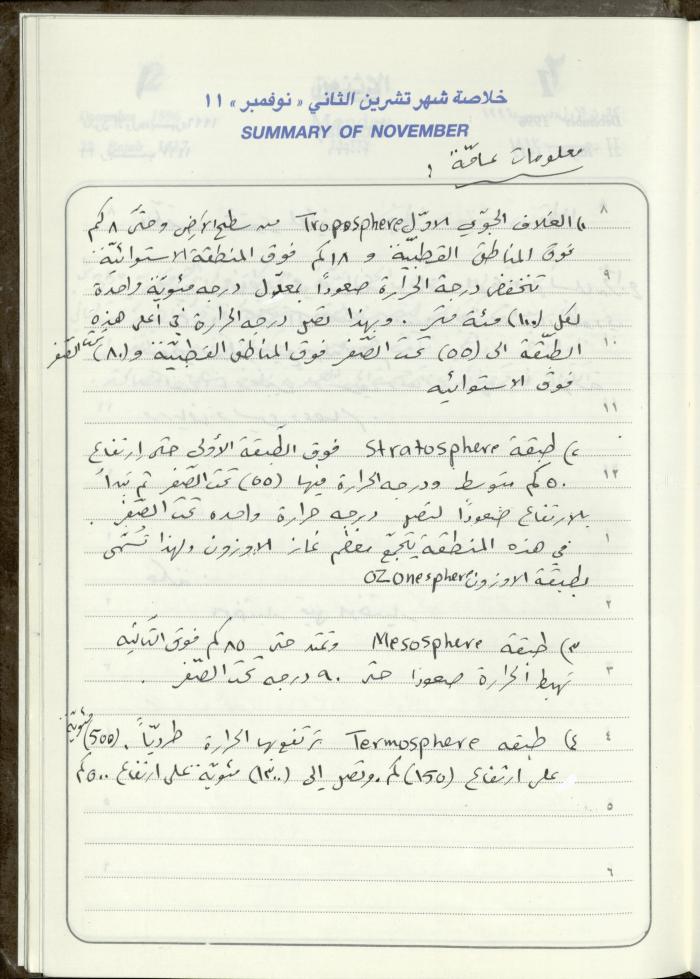 خلاصة شهر تشرين الثاني « نوفمبر » ١١
SUMMARY OF NOVEMBER
معلومات عامّة :
٨
١) الغلاف الجوّي الاوّل Troposphere من سطح الأرض وحتّى ٨ كم
فوق المناطق القطبيّة و ١٨ كم فوق المنطقة الاستوائيّة
٩
تنخفض درجة الحرارة صعوداً بمعدّل درجه مئويّة واحدة
لكل (١٠٠) مئة متر . وبهذا تصل درجه الحرارة في أعلى هذه
١٠
الطبّقة الى (٥٥) تحت الصّفر فوق المناطق القطبيّة و (٨٠) تحت الصّفر
فوق الاستوائيه
١١
٢) طبقة Stratosphere فوق الطّبقة الأولى حتى ارتفاع
١٢
٥٠ كم متوسط ودرجه الحرارة فيها (٥٥) تحت الصّفر ثم تبدأ
بالارتفاع صعوداً لتصل درجه حرارة واحده تحت الصّفر .
١
في هذه المنطقة يتجمّع معظم غاز الاوزون ولهذا تُسمّى
بطبقة الاوزون OZOnesphere
٢
٣) طبقة Mesosphere وتمتد حتى ٨٥ كم فوق الثّانيه
٣
تهبط الحرارة صعودا حتى ٩٠ درجه تحت الصّفر .
٤
٤) طبقه Termosphere ترتفع بها الحرارة طرديّاً . (500) مئويّة
على ارتفاع (150) كم . وتصل الى (١٣٠٠) مئويّة على ارتفاع ٥٠٠ كم
٥
٦